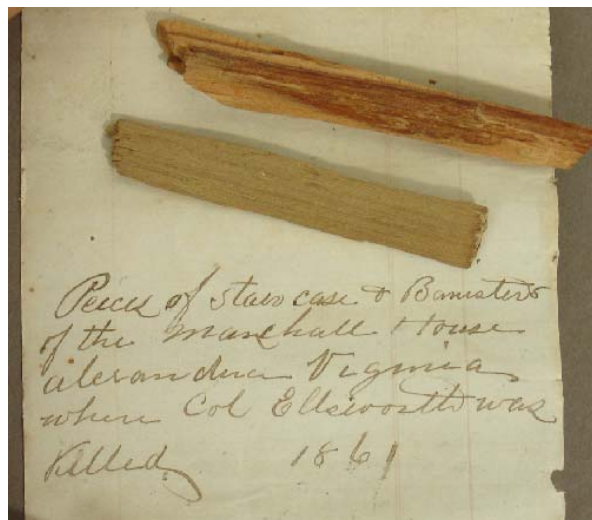 Peices of Stair case & Banisters
of the Marshall House
alexandria Virginia
where Col Ellsworth was
Killed 1861